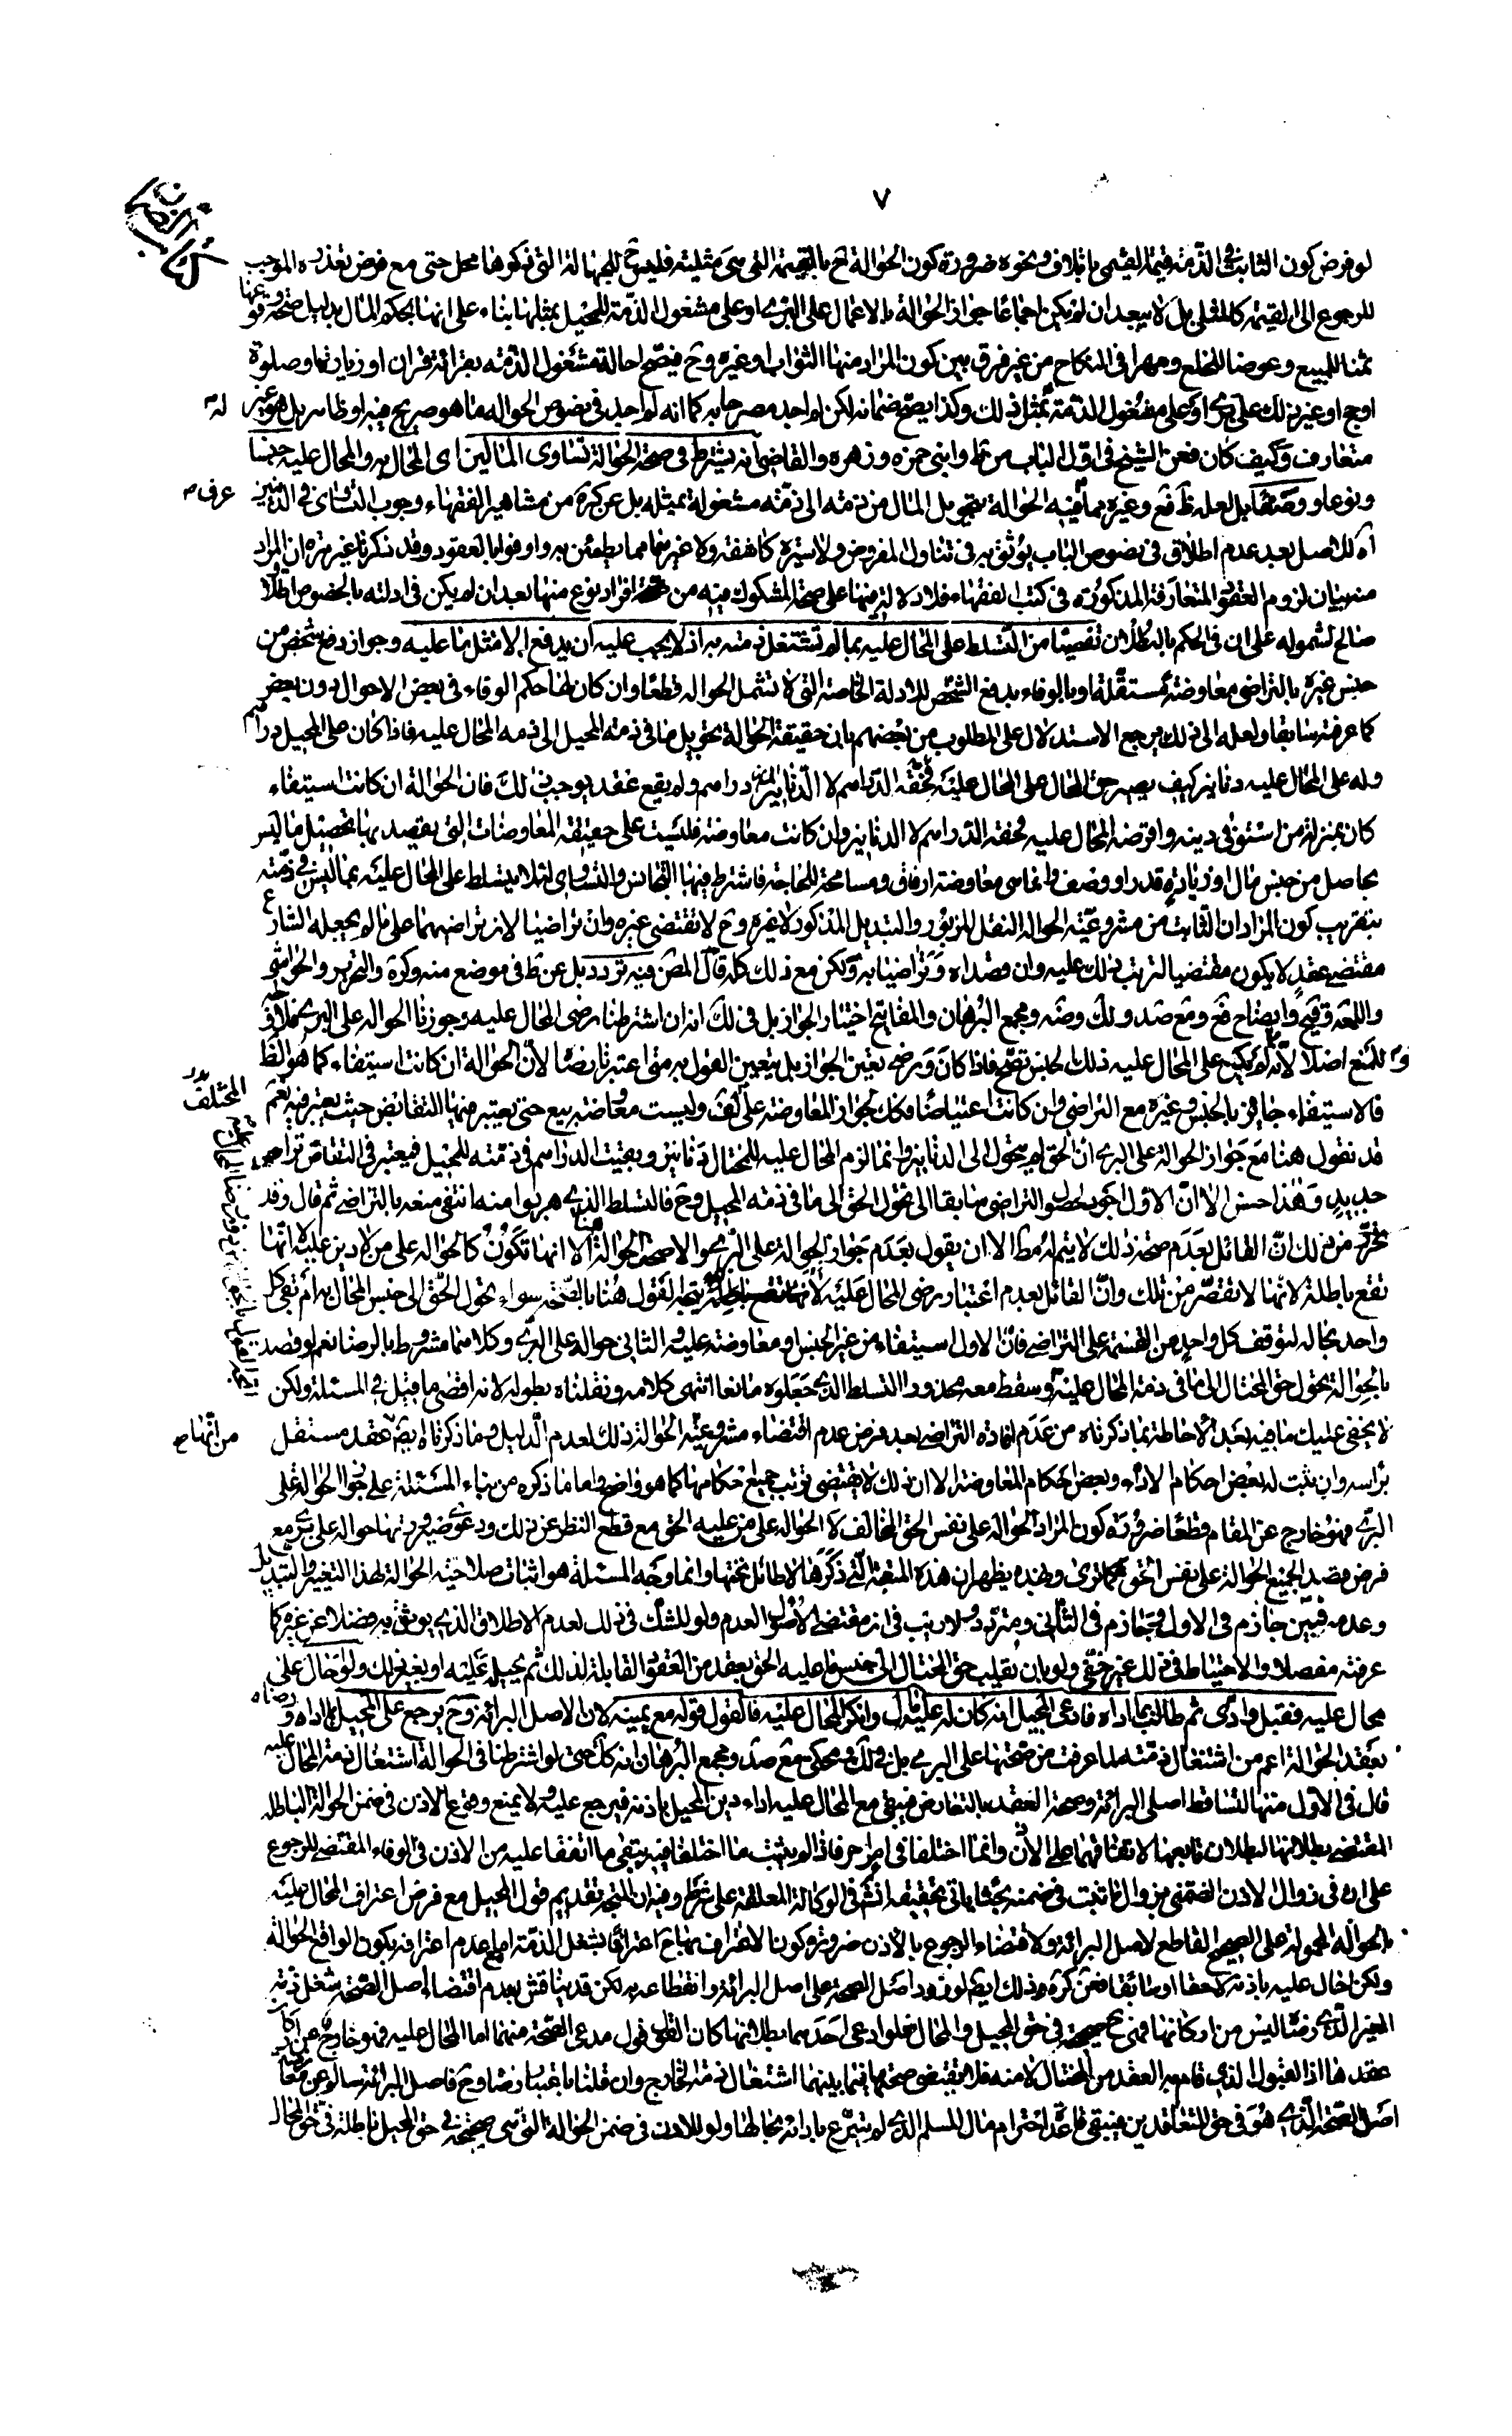 ٧
لو فرض كون الثابت في الذمة قيمة القيمي باتلاف ونحوه ضرورة كون الحوالة ح بالقيمة التي هي مثلية فليس ح للجهالة التي ذكروها محل حتى مع فرض تعذره الموجب
للرجوع الى القيمة كالمثلى بل لا يبعد ان لم يكن اجماعا جواز الحوالة بالاعمال على البرى او على مشغول الذمة للمحيل بمثلها بناء على انها بحكم المال بدليل صحة وقوعها
ثمنا للمبيع وعوضا للخلع ومهرا في النكاح من غير فرق بين كون المراد منها الثواب او غيره وح فيصح احالة مشغول الذمة بقرائة قران او زيارة او صلوة
او حج او غير ذلك على برى او على مشغول الذمة بمثل ذلك وكذا يصح ضمانه لكن لم اجد مصرحا به كما انه لم اجد في نصوص الحواله ما هو صريح فيه او ظاهر بل هو غير
متعارف وكيف كان فعن الشيخ في اول الباب من ط وابني حمزه وزهره والقاضي انه يشترط في صحة الحوالة تساوى المالين اى المحال به والمحال عليه جنسا
ونوعا ووصفا بل لعله ظ فع وغيره مما فيه الحوالة تحويل المال من ذمته الى ذمة مشغولة بمثله بل عن كرة من مشاهير الفقهاء وجوب التساوى في الدينين
لاصل بعد عدم اطلاق في نصوص الباب يوثق به في تناول المفروض ولا سيرة كاشفة ولا غيرهما مما يطمئن به واوفوا بالعقود وقد ذكرنا غير مرة ان المراد
منه بيان لزوم العقود المتعارفة المذكورة في كتب الفقهاء فلا دلالة فيها على صحة المشكوك فيه من افراد نوع منها بعد ان لم يكن في ادلته بالخصوص اطلاق
صالح لشموله على ان في الحكم بالبطلان تفصيا من التسلط على المحال عليه بما لم تشتغل ذمته به اذ لا يجب عليه ان يدفع الا مثل ما عليه وجواز دفع شخص من
جنس غيره بالتراضي معاوضة مستقلة او بالوفاء بدفع الشخص للادلة الخاصة التي لا تشمل الحواله قطعا وان كان لها حكم الوفاء في بعض الاحوال دون بعض
كما عرفته سابقا ولعله الى ذلك يرجع الاستدلال على المطلوب من بعضهم بان حقيقة الحوالة تحويل ما في ذمة المحيل الى ذمه المحال عليه فاذا كان على المحيل دراهم
وله على المحال عليه دنانير كيف يصير حق المحال على المحال عليه الدراهم لا الدنانير دراهم ولم يقع عقد يوجب ذلك فان الحوالة ان كانت استيفاء
كان بمنزلة من استوفى دينه واقرضه المحال عليه فحقه الدراهم لا الدنانير وان كانت معاوضة فليست على حقيقة المعاوضات التي يقصد بها تحصيل ما ليس
بحاصل من جنس مال او زيادة قدر او وصف وانما هي معاوضة ارفاق ومسامحة للحاجة فاشترط فيها التجانس والتساوى لئلا يتسلط على المحال عليه بما ليس في ذمته
بتقريب كون المراد ان الثابت من مشروعية الحوالة النقل المزبور والتبديل المذكور لا غيره وح لا تقتضي غيره وان تراضيا لان تراضيهما على ما لم يجعله الشارع
مقتضى عقد لا يكون مقتضيا لترتب ذلك عليه وان قصداه وتراضيا به ولكن مع ذلك كله قال المص فيه تردد بل عن ط في موضع منه وكرة والتحرير والحواشى
واللمعة وايضاح فع ومع صد ولك وضه ومجمع البرهان والمفاتيح اختيار الجواز بل في لك انه ان اشترطنا رضى المحال عليه وجوزنا الحواله على البرى
للمنع اصلا لانه لم يكن على المحال عليه ذلك الجنس تصح فاذا كان ورضى تعين الجواز بل يتعين القول به متى اعتبر رضا لان الحوالة ان كانت استيفاء كما هو الظ
فالاستيفاء جائز بالجنس وغيره مع التراضي وان كانت اعتياضا فكك لجواز المعاوضة على وليست معاوضة بيع حتى يعتبر فيها التقابض حيث يعتبر فيه نعم
قد نقول هنا مع جواز الحوالة على البرى ان الحق لم يتحول الى الدنانير وانما لزم المحال عليه للمحتال دنانير وبقيت الدراهم في ذمته للمحيل فيعتبر في التقاص تراض
جديد وهذا حسن الا ان الاول اجود لحصول التراضي سابقا الى تحول الحق الى ما في ذمة المحيل وح فالتسلط الذى هربوا منه انتفى منعه بالتراضي ثم قال وقد
تحرر من ذلك ان القائل بعدم صحة ذلك لا يتم له مط الا ان يقول بعدم جواز الحوالة على البرى والا صحت الحوالة هنا الا انها تكون كالحواله على من لا دين عليه لا انها
تقع باطلة لانها لا تقصر من تلك وان القائل بعدم اعتبار رضى المحال عليه لا يتجه له القول هنا بالصحة سواء تحول الحق الى جنس المحال به ام بقى كل
واحد بحاله لتوقف كل واحد من القسمة على التراضي فان الاول استيفاء من غير الجنس او معاوضة عليه والثاني حواله على البرى وكلاهما مشروط بالرضا نعم لو قصد
بالحوالة تحول حق المحتال الى ما في ذمة المحال عليه وسقط معه محذور التسلط الذى جعلوه مانعا انتهى كلامه ونقلناه بطوله لانه اقصى ما قيل في المسئلة ولكن
لا يخفى عليك ما فيه بعد الاحاطة بما ذكرناه من عدم افادة التراضي بعد فرض عدم اقتضاء مشروعية الحوالة ذلك لعدم الدليل وما ذكرناه ايضا عقد مستقل
براسه وان ثبت له بعض احكام الاداء وبعض احكام المعاوضة الا ان ذلك لا يقتضي ترتب جميع احكامها كما هو واضح واما ما ذكره من بناء المسئلة على الحوالة على
البرى فهو خارج عن المقام قطعا ضرورة كون المراد الحوالة على نفس الحق المخالف لا الحواله على من عليه الحق مع قطع النظر عن ذلك ودعوى ضرورتها حواله على برى مع
فرض قصد الجميع الحوالة على نفس الحق كما ترى وبهذه يظهر ان هذه المتعبة التي ذكرها لا طائل تحتها وانما وجه المسئلة هو اثبات صلاحية الحوالة لهذا التغيير والتبديل
وعدمه فبين جازم في الاول وجازم في الثاني ومتردد ولا ريب في ان مقتضى الاصول العدم ولو للشك في ذلك لعدم الاطلاق الذى يوثق به فضلا عن غيره كما
عرفته مفصلا والاحتياط في ذلك غير خفى ولو بان يقلب حق المحتال الى جنس ما عليه الحق بعقد من العقود القابلة لذلك ثم يحيله عليه او بغير ذلك ولو احال على
محال عليه فقبل وادى ثم طالب بما اداه فادعى المحيل انه كان له عليه مال وانكر المحال عليه فالقول قوله مع يمينه لان الاصل البرائة وح يرجع على المحيل بما اداه ورضاه
بعقد الحوالة اعم من اشتغال ذمته لما عرفت من صحتها على البرى بل في لك ومحكى مع صد ومجمع البرهان انه كك حتى لو اشترطنا في الحوالة اشتغال ذمة المحال عليه
قال في الاول منها لتساقط اصلى البرائة وصحة العقد بالتعارض فيبقى مع المحال عليه اداء دين المحيل باذنه فيرجع عليه ولا يمنع وقوع الاذن في ضمن الحوالة الباطله
المقتضى بطلانها لبطلان تابعها لاتفاقهما على الاذن وانما اختلفا في امر اخر فاذا لم يثبت ما اختلفا فيه يبقى ما اتفقا عليه من الاذن في الوفاء المقتضى للرجوع
على ان في زوال الاذن الضمنى بزوال ما ثبت في ضمنه بحثا ياتي تحقيقه انش في الوكالة المعلقة على شرط وفيه ان المتجه تقديم قول المحيل مع فرض اعتراف المحال عليه
بالحوالة المحمولة على الصحيح القاطع لاصل البرائة ولا اقتضاء الرجوع بالاذن ضرورة كون الاعتراف بها ح اعترافا بشغل الذمة اما مع عدم اعترافه بكون الواقع الحوالة
ولكن احال عليه باذنه لاحقا او سابقا فعن كرة وذلك ايضا لورود اصل الصحة على اصل البرائة وانقطاعه به لكن قد يناقش بعدم اقتضاء اصل الصحة شغل ذمة
الغير الذى رضاه ليس من اركانها فهى ح صحيحة في حق المحيل والمحتال فلو ادعى احدهما بطلانها كان القول قول مدعى الصحة منهما اما المحال عليه فهو خارج عن اركان
عقدها اذ القبول الذى قام به العقد من المحتال لا منه فلا يقتضي صحتها فيما بينهما اشتغال ذمة الخارج وان قلنا باعتبار رضاه وح فاصل البرائة سالم عن معارضة
اصل الصحة الذى هو في حق المتعاقدين فيبقى قاعدة احترام مال المسلم الذى لم يتبرع بادائه بحالها ولو للاذن في ضمن الحوالة التي هي صحيحة في حق المحيل باطلة في حق المحال